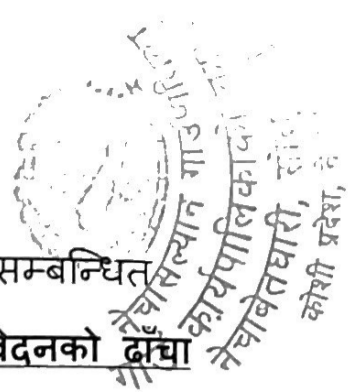 सम्बन्धित
वेदनको ढाँचा
नेचासल्यान गाउँ
कार्यपालिकाको
नेचाबेतघारी, सोलु
कोशी प्रदेश, ने